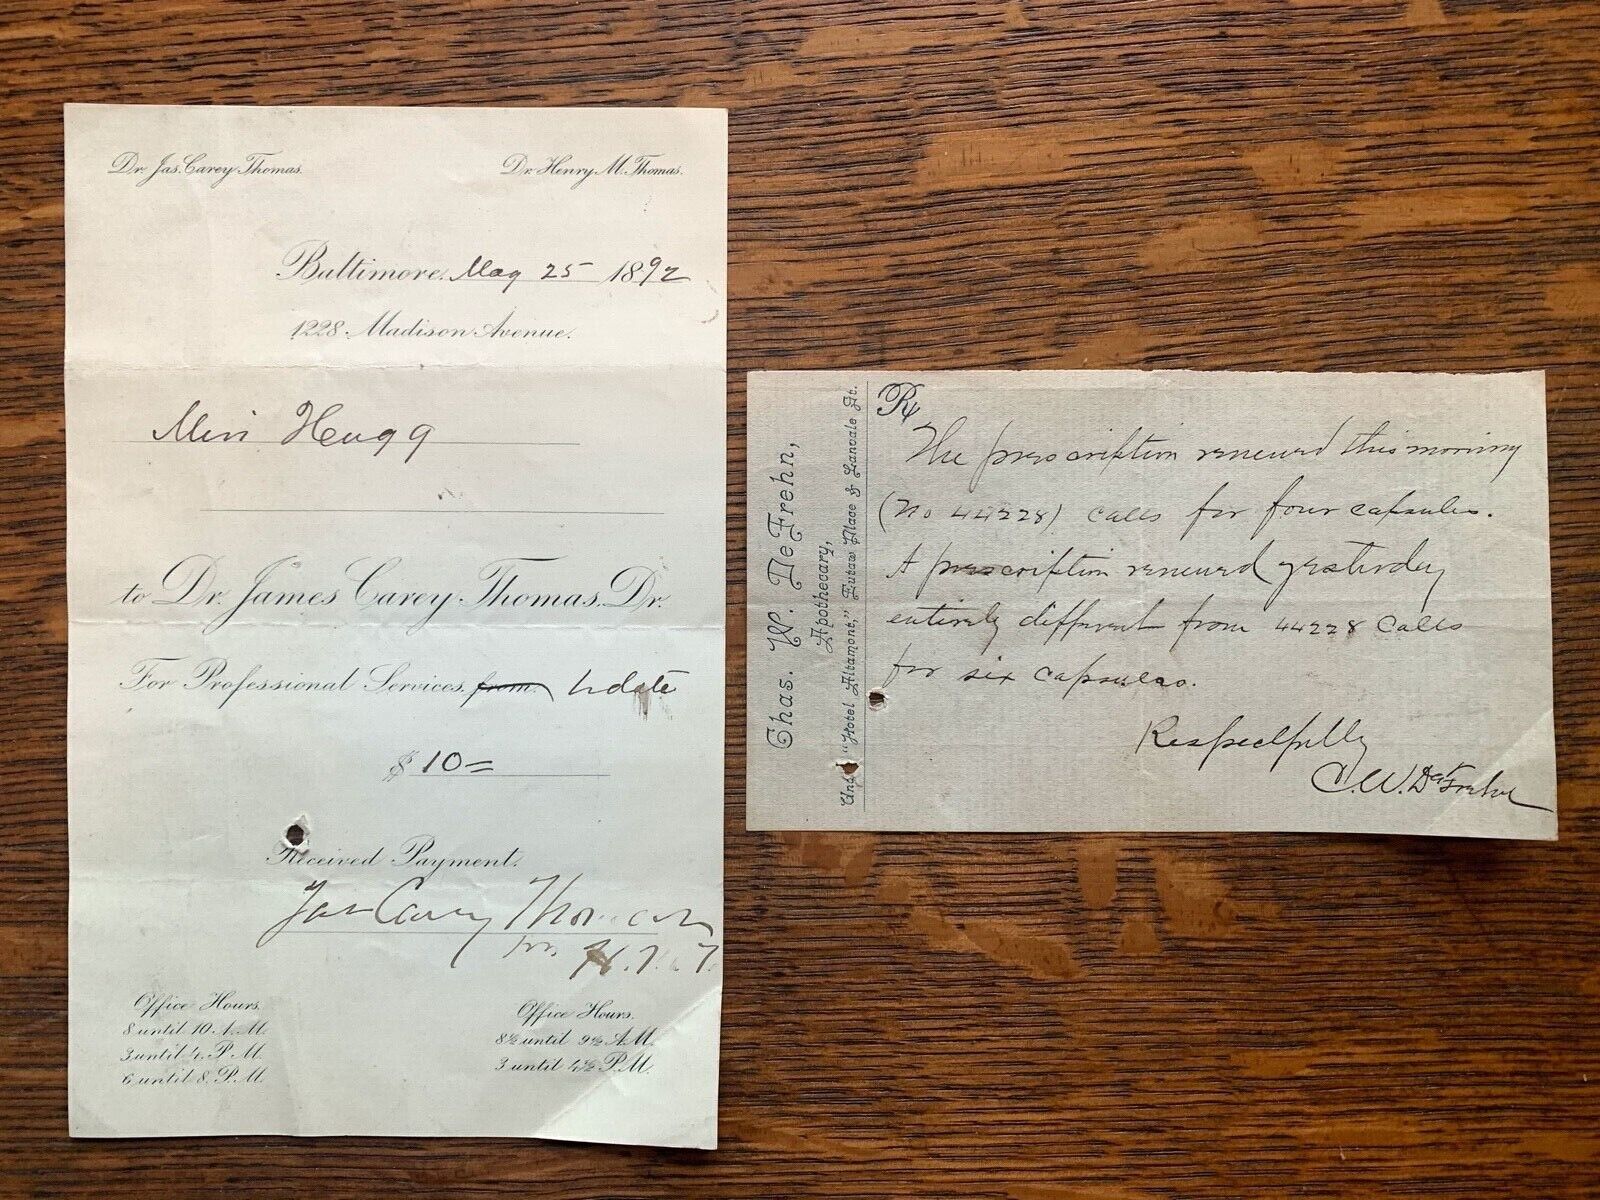 Dr. Jas. Carey Thomas.
Dr. Henry M. Thomas.
Baltimore, May 25 1892
1228 Madison Avenue.
Miss Hugg
to Dr. James Carey Thomas, Dr.
For Professional Services, from to date
$ 10=
Received Payment.
Jas Carey Thomas
H. M. T.
Office Hours.
8 until 10 A.M.
3 until 4. P.M.
6 until 8. P.M.
Office Hours.
8½ until 9½ A.M.
3 until 4½ P.M.
Chas. W. DeFrehn,
Apothecary,
Und. "Hotel Altamont," Eutaw Place & Lanvale St.
Rx
The prescription renewed this morning
(No 44228) calls for four capsules.
A prescription renewed yesterday
entirely different from 44228 calls
for six capsules.
Respectfully
C. W. DeFrehn